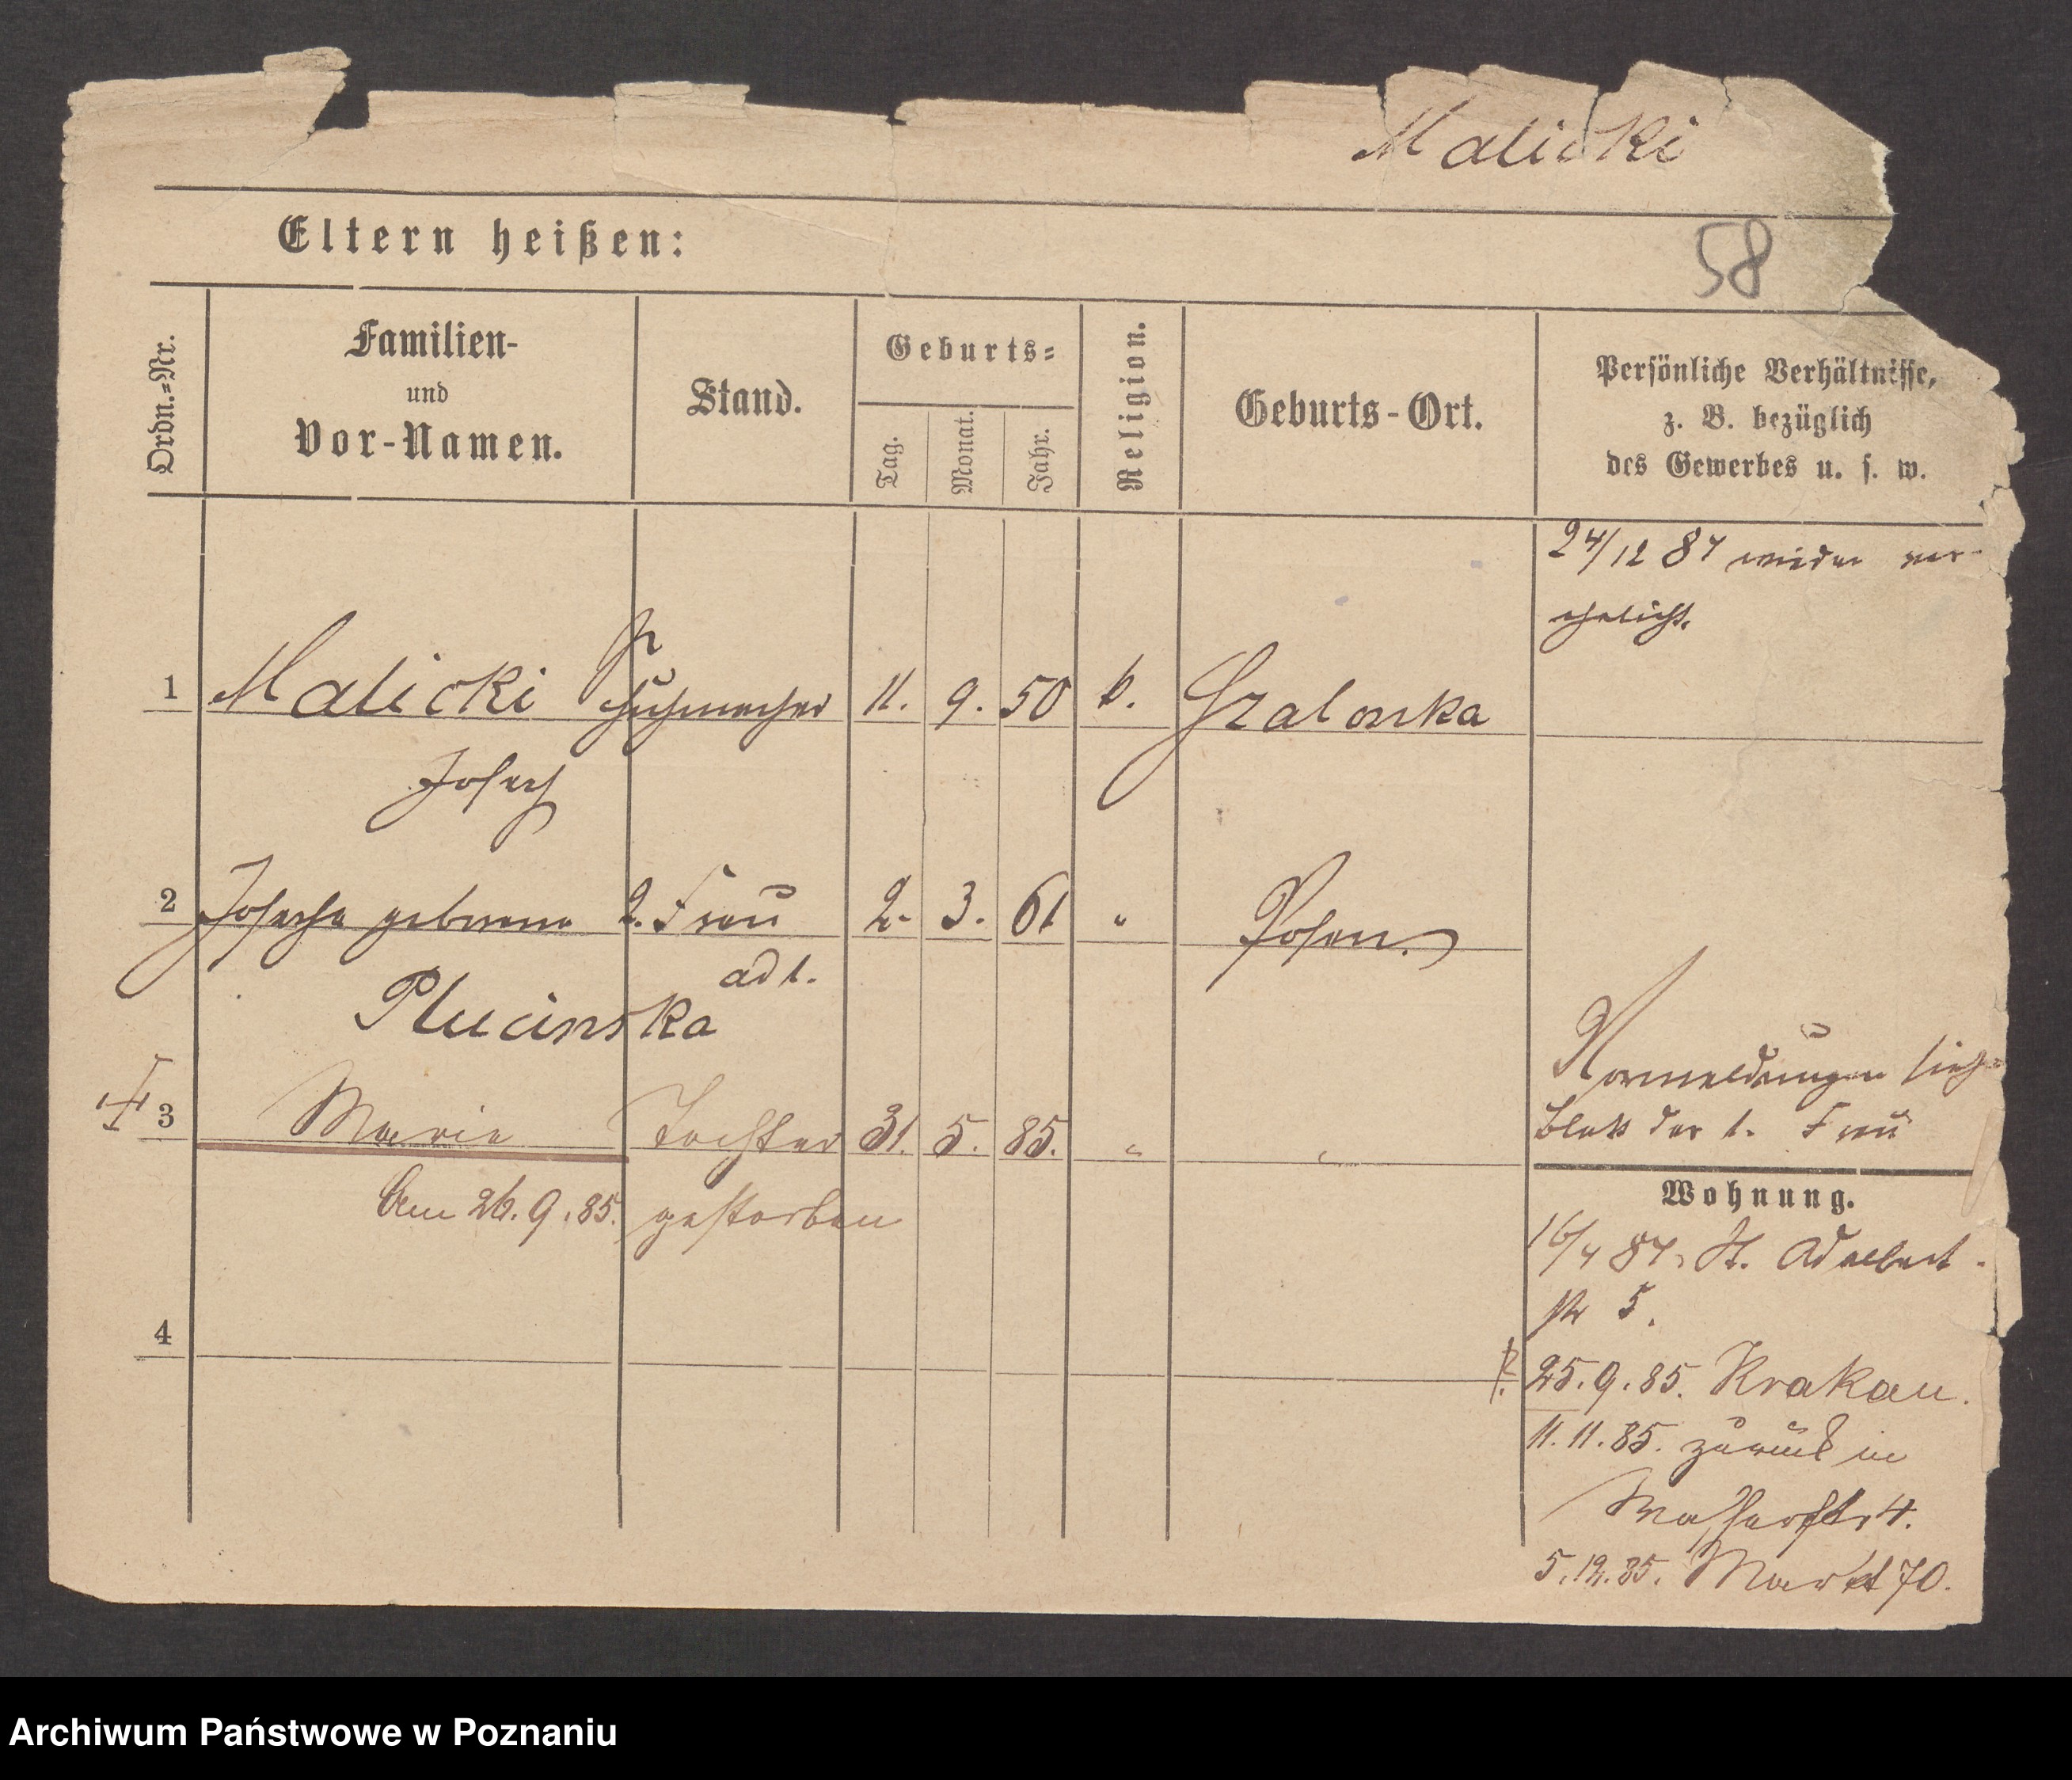 Malicki
Eltern heißen:
58
Ordn.=Nr.
Familien-
und
Vor-Namen.
Stand.
Geburts=
Tag.
Monat.
Jahr.
Religion.
Geburts-Ort.
Persönliche Verhältnisse,
z. B. bezüglich
des Gewerbes u. s. w.
24/12 84 wieder ver-
ehelicht.
1 Malicki Schuhmacher 11. 9. 50 k.
Josef
2 Josefa geborene 2. Frau 2. 3. 61 " Posen.
ad 1.
Plucinska
Vormeldungen sieh
Blatt der 1. Frau
3 Marie Tochter 31. 5. 85. " "
Am 26. 9. 85. gestorben
Wohnung.
16/4 84, St. Adalbert-
str 5.
4
25. 9. 85. Krakau.
11. 11. 85. zurück in
Wasserstr 4.
5. 12. 85. Markt 70.
Archiwum Państwowe w Poznaniu